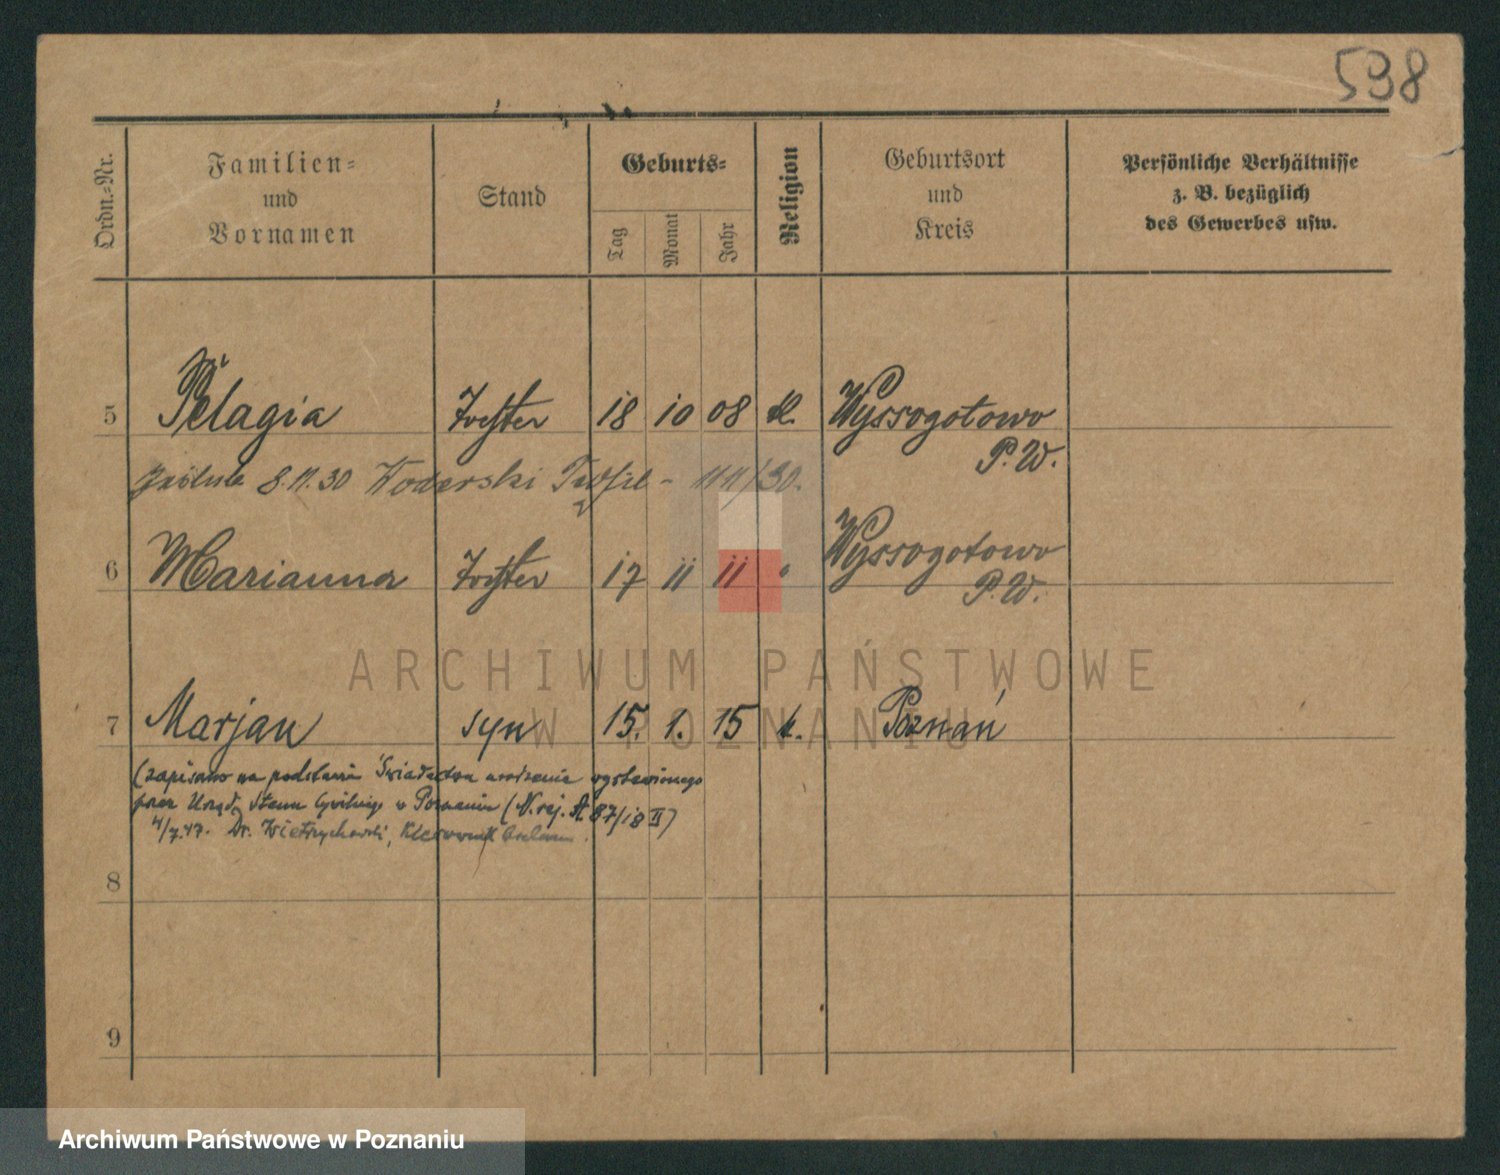 598
Ordn.-Nr.
Familien-
und
Vornamen
Stand
Geburts-
Tag
Monat
Jahr
Religion
Geburtsort
und
Kreis
Persönliche Verhältnisse
z. B. bezüglich
des Gewerbes usw.
5 Pelagia Tochter 18 10 08 k. Wyssogotowo
P.W.
8.11.30 Woderski Teofil - /30.
6 Marianna Tochter 17 11 11 " Wyssogotowo
P.W.
7 Marjan syn 15. 1. 15 k. Poznań
(zapisano na podstawie Świadectwa urodzenia wystawionego
przez Urząd Stanu Cywilnego w Poznaniu (N. rej. 87/18 II)
4/7.47. Dr. Kierownik
8
9
ARCHIWUM PAŃSTWOWE
W POZNANIU
Archiwum Państwowe w Poznaniu